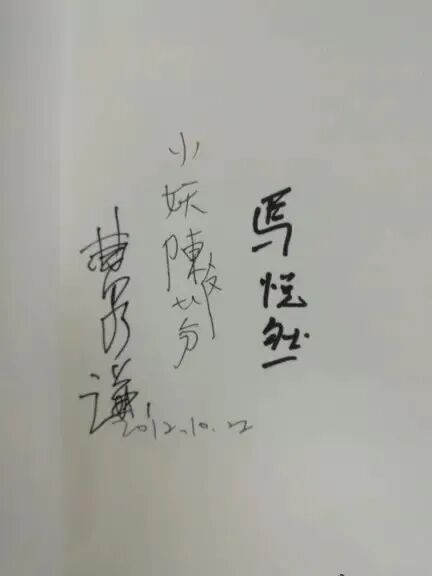 馬悦然
小妖陳文芬
曹乃謙
2012.10.22